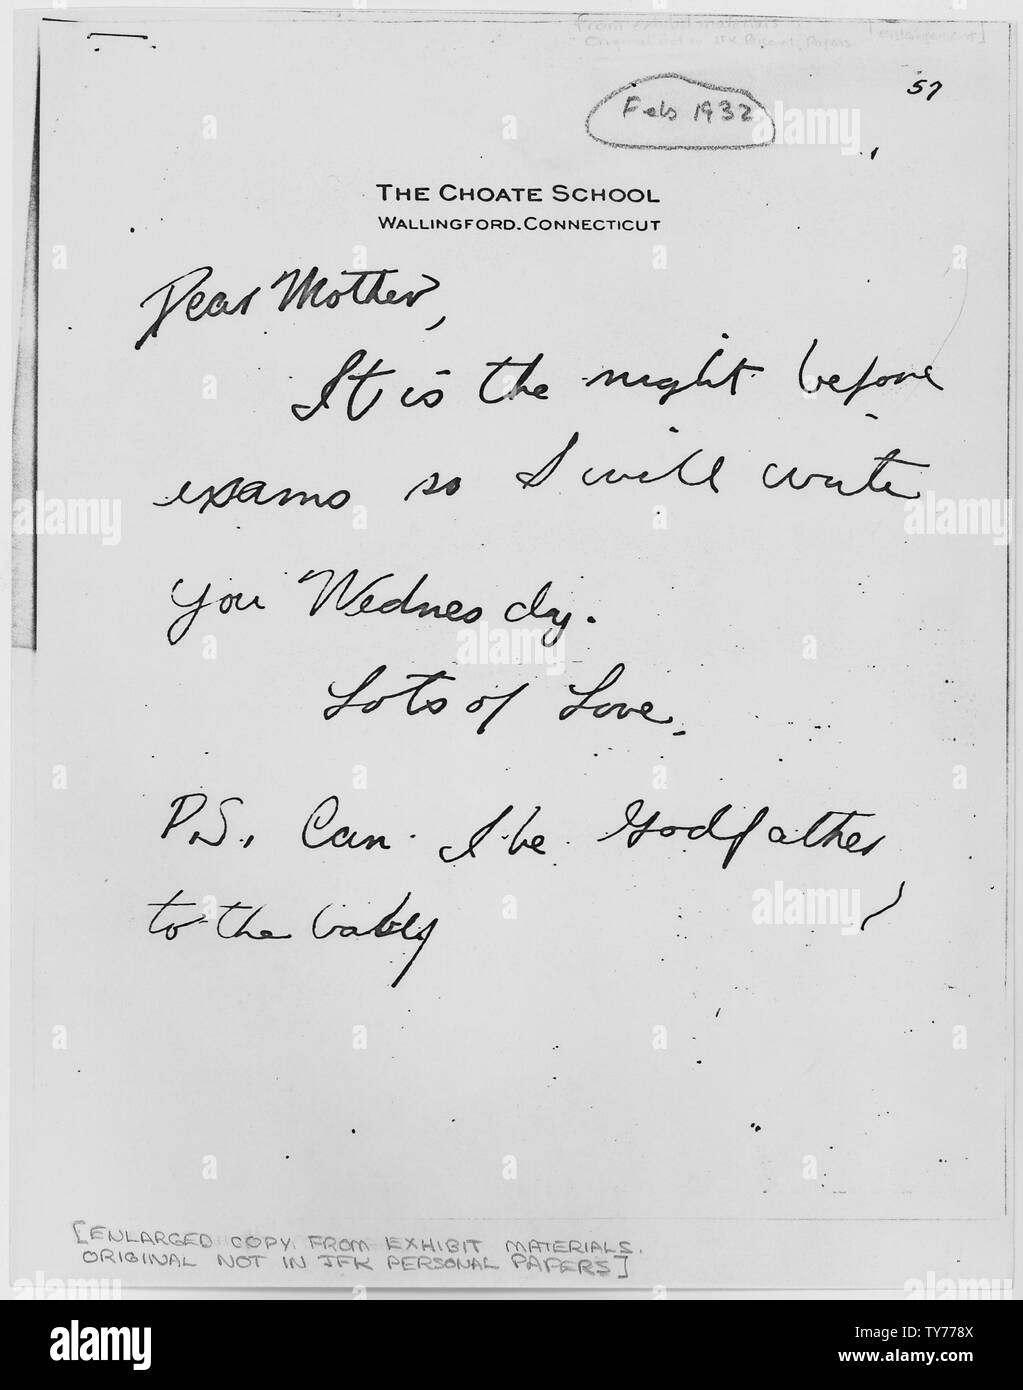 from exhibit materials [enlargement]
Original not in JFK Personal Papers
57
Feb 1932
THE CHOATE SCHOOL
WALLINGFORD, CONNECTICUT
Dear Mother,
It is the night before
exams so I will write
you Wednesday.
Lots of Love.
P.S. Can I be Godfather
to the baby
[ENLARGED COPY FROM EXHIBIT MATERIALS.
ORIGINAL NOT IN JFK PERSONAL PAPERS]
alamy
Image ID: TY778X
www.alamy.com